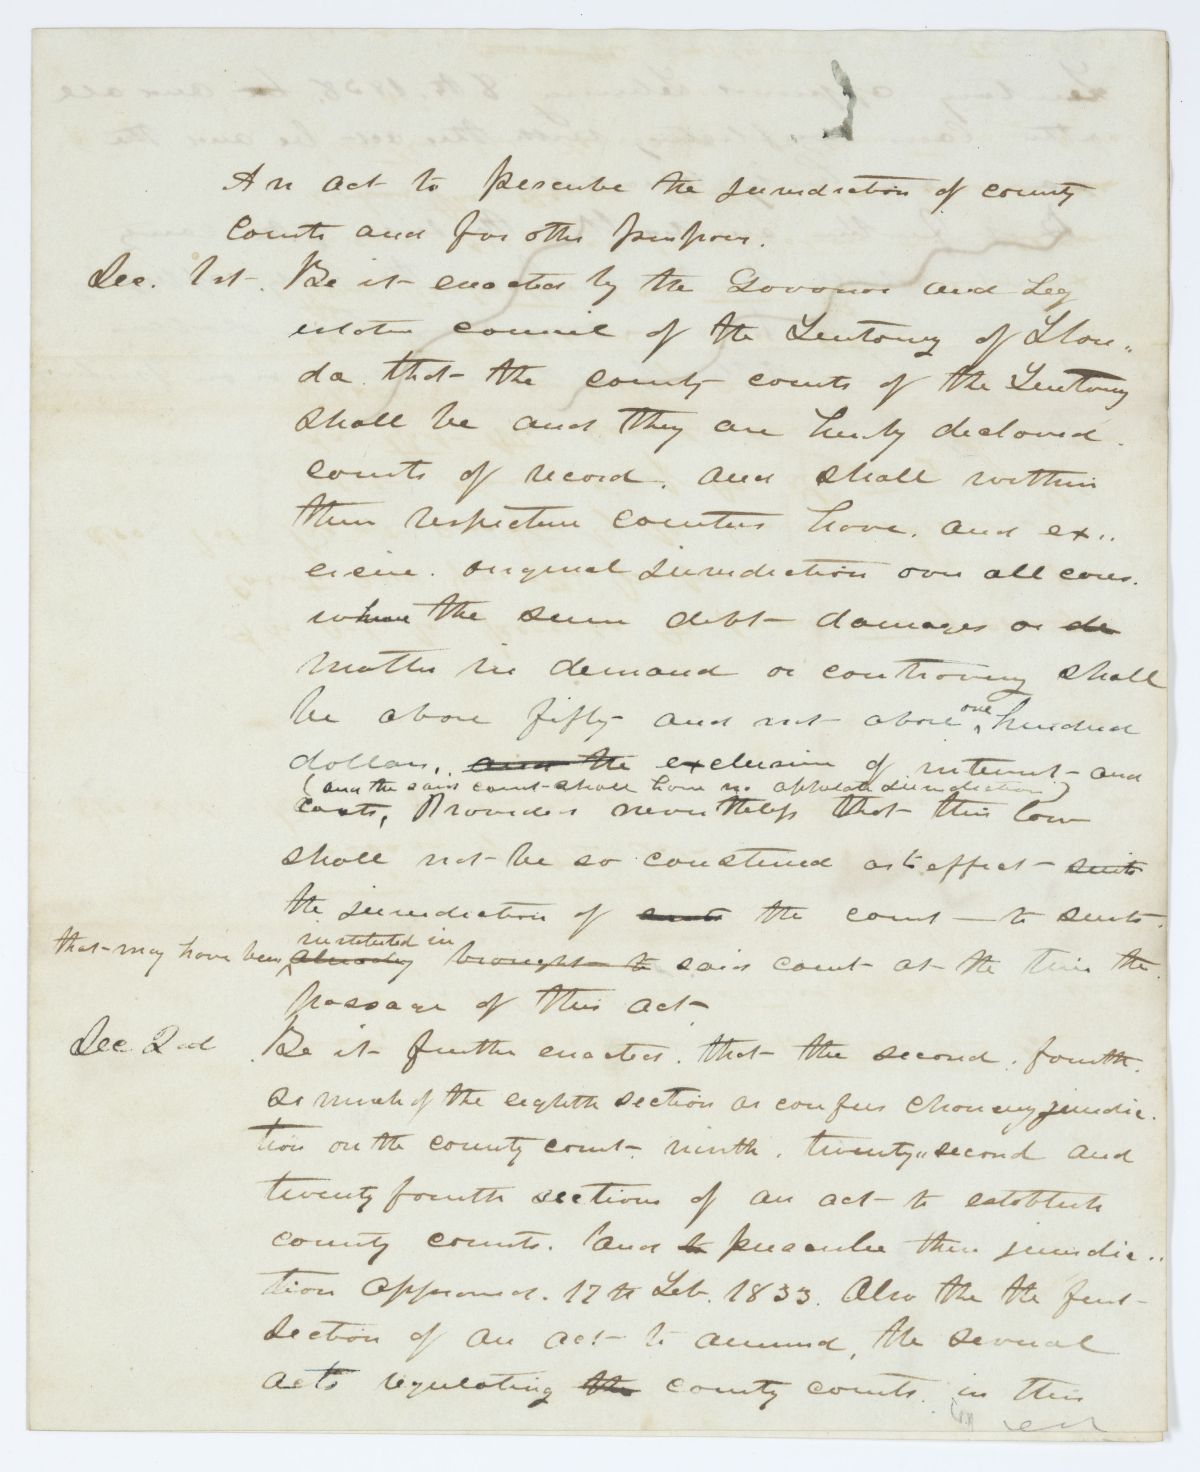 An act to prescribe the jurisdiction of county
Courts and for other purposes.
Sec. 1st. Be it enacted by the Govonor and Leg
islative council of the Territory of Flori„
da. that the county courts of the Territory
shall be and they are hereby declared.
courts of record. and shall within
their respective counties have. and ex„
ercise. original jurisdiction over all cases.
where the sum debt damages or de
matter in demand or controversy shall
be above fifty and not above one hundred
dollars, and the exclusive of interest and
(and the said court shall have no appelate jurisdiction)
costs, Provided nevertheless that this law
shall not be so construed as to effect suits
the jurisdiction of suits the court to suits.
that may have been instituted in
already brought to said court at the time the
passage of this act
Sec 2nd Be it further enacted. that the second. fourth.
so much of the eighth section as confers chancery jurisdic.
tion on the county court. ninth. twenty„second and
twenty fourth sections of an act to establish
county courts. and to prescribe their jurisdic„
tion approved. 17th Feb. 1833. Also the the first
section of an act to amend, the several
acts regulating the county courts. in this